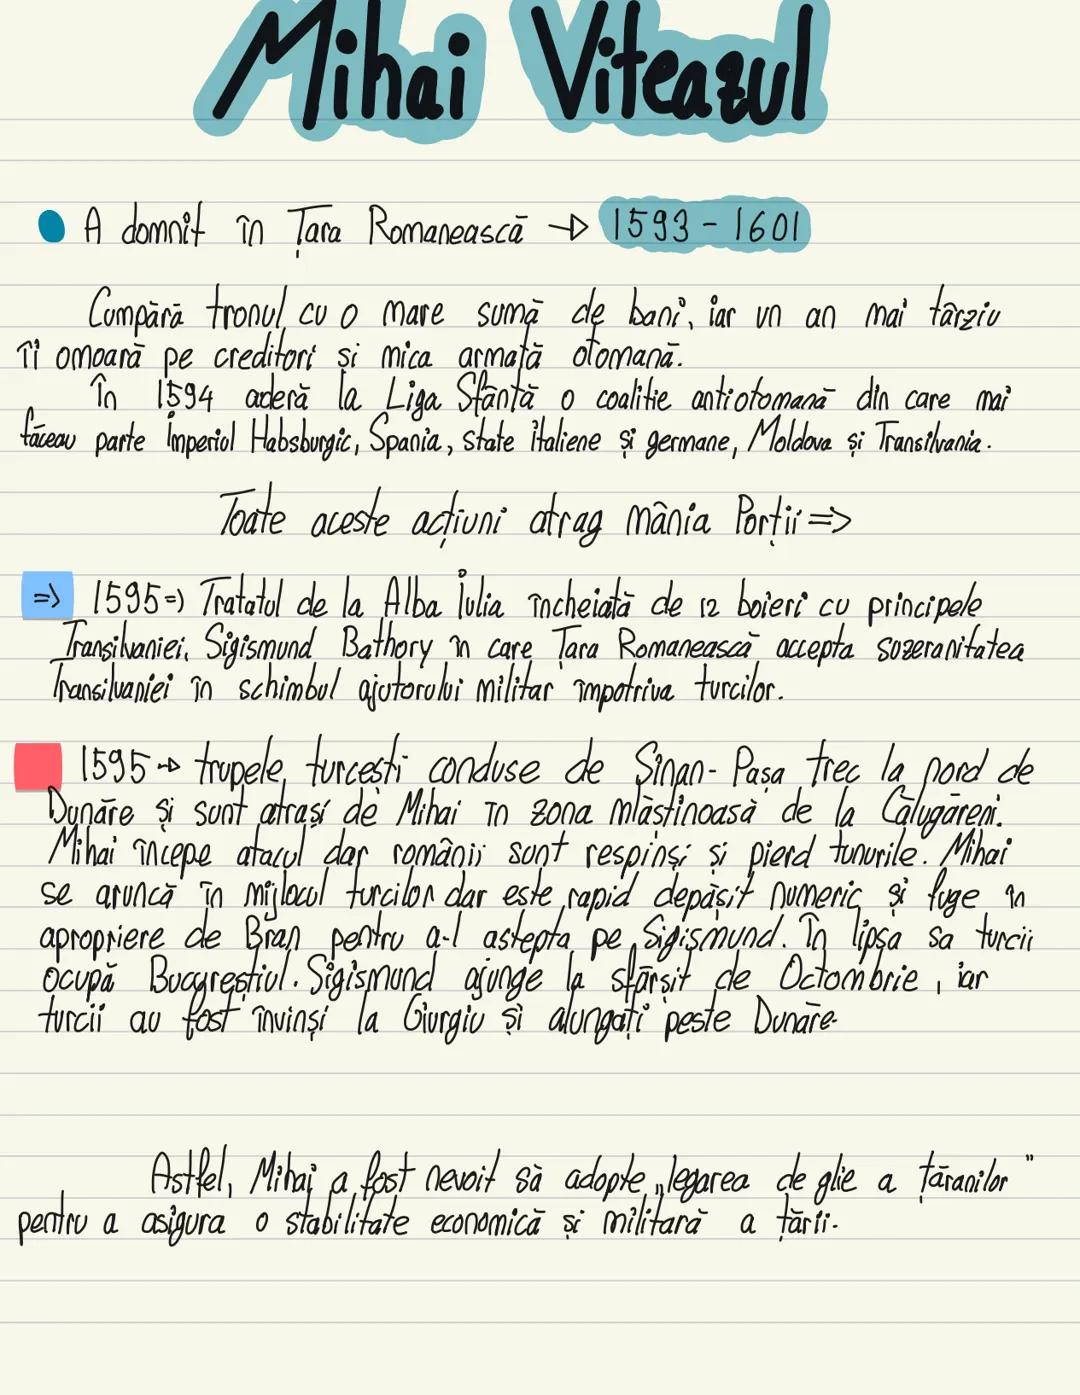 Mihai Viteazul
A domnit în Țara Romanească → 1593 - 1601
Cumpără tronul cu o mare sumă de bani, iar un an mai târziu
îi omoară pe creditori și mica armată otomană.
În 1594 aderă la Liga Sfântă o coalitie antiotomană din care mai
făceau parte Imperiul Habsburgic, Spania, state italiene și germane, Moldova și Transilvania.
Toate aceste acțiuni atrag mânia Porții =>
=> 1595 => Tratatul de la Alba Iulia încheiată de 12 boieri cu principele
Transilvaniei, Sigismund Bathory în care Țara Romanească accepta suzeranitatea
Transilvaniei în schimbul ajutorului militar împotriva turcilor.
1595 → trupele turcești conduse de Sinan-Pașa trec la nord de
Dunăre și sunt atrași de Mihai în zona mlăștinoasă de la Călugăreni.
Mihai începe atacul dar românii sunt respinși și pierd tunurile. Mihai
se aruncă în mijlocul turcilor dar este rapid depășit numeric și fuge în
apropriere de Bran pentru a-l astepta pe Sigismund. În lipsa sa turcii
ocupă Bucureștiul. Sigismund ajunge la sfârșit de Octombrie, iar
turcii au fost învinși la Giurgiu și alungați peste Dunăre.
Astfel, Mihai a fost nevoit să adopte „legarea de glie a țăranilor"
pentru a asigura o stabilitate economică și militară a țării.